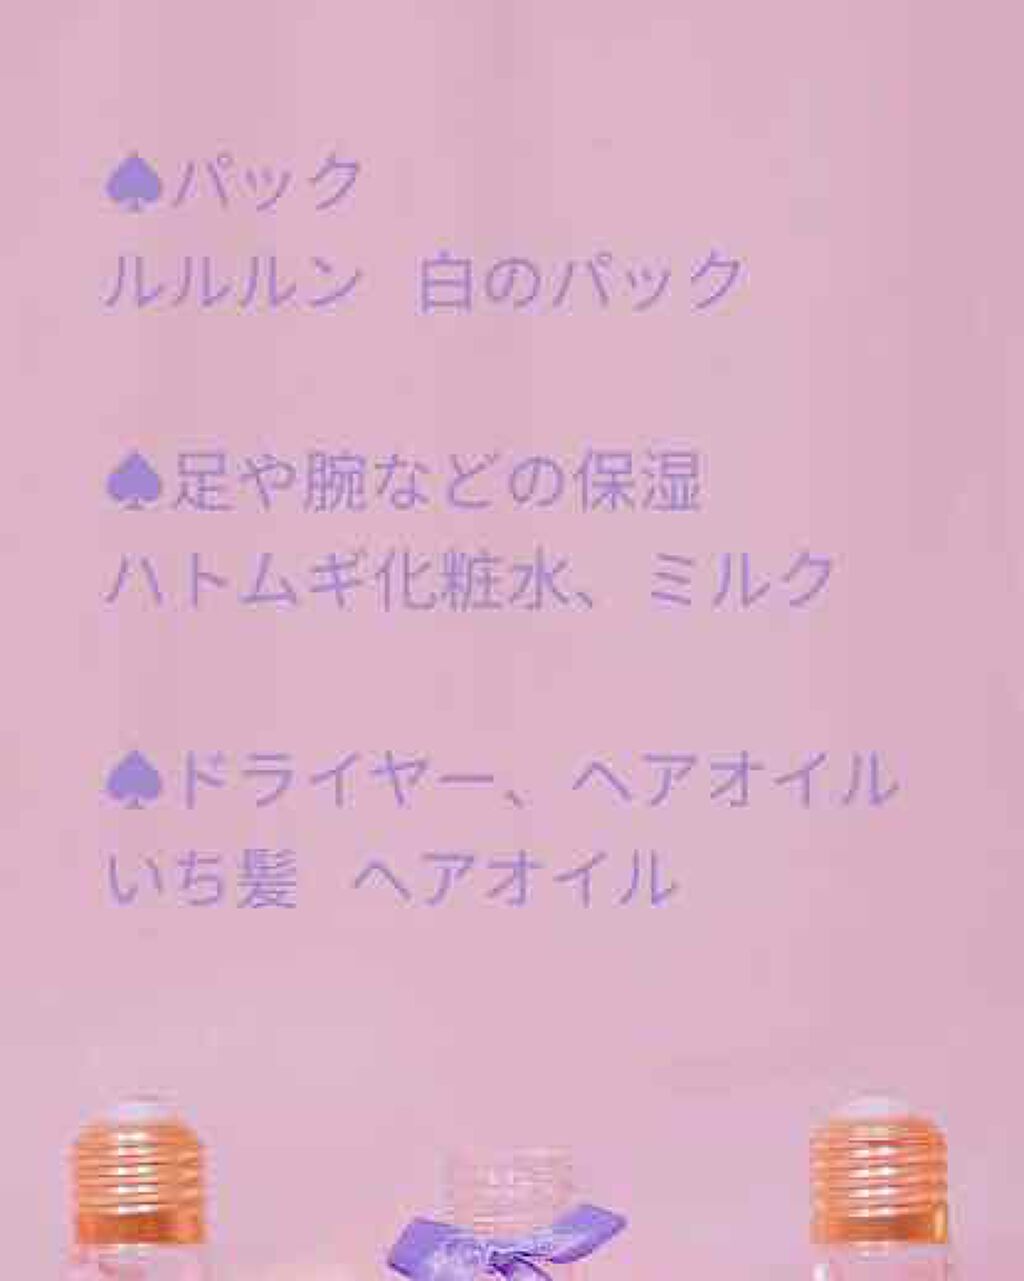 ♠パック
ルルルン 白のパック
♠足や腕などの保湿
ハトムギ化粧水、ミルク
♠ドライヤー、ヘアオイル
いち髪 ヘアオイル